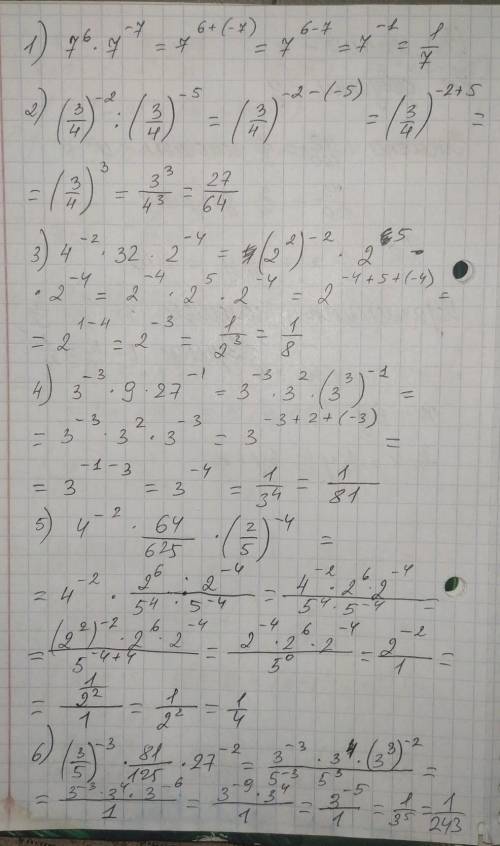 1) 7⁶ · 7⁻⁷ = 7⁶⁺⁽⁻⁷⁾ = 7⁶⁻⁷ = 7⁻¹ = 1/7
2) (3/4)⁻² : (3/4)⁻⁵ = (3/4)⁻²⁻⁽⁻⁵⁾ = (3/4)⁻²⁺⁵ =
= (3/4)³ = 3³/4³ = 27/64
3) 4⁻² · 32 · 2⁻⁴ = (2²)⁻² · 2⁵ ·
· 2⁻⁴ = 2⁻⁴ · 2⁵ · 2⁻⁴ = 2⁻⁴⁺⁵⁺⁽⁻⁴⁾ =
= 2¹⁻⁴ = 2⁻³ = 1/2³ = 1/8
4) 3⁻³ · 9 · 27⁻¹ = 3⁻³ · 3² · (3³)⁻¹ =
= 3⁻³ · 3² · 3⁻³ = 3⁻³⁺²⁺⁽⁻³⁾ =
= 3⁻¹⁻³ = 3⁻⁴ = 1/3⁴ = 1/81
5) 4⁻² · 64/625 · (2/5)⁻⁴ =
= 4⁻² · 2⁶ · 2⁻⁴/5⁴ · 5⁻⁴ = 4⁻² · 2⁶ · 2⁻⁴/5⁴ · 5⁻⁴ =
= (2²)⁻² · 2⁶ · 2⁻⁴/5⁻⁴⁺⁴ = 2⁻⁴ · 2⁶ · 2⁻⁴/5⁰ = 2⁻²/1 =
= 1/2²/1 = 1/2² = 1/4
6) (3/5)⁻³ · 81/125 · 27⁻² = 3⁻³ · 3⁴ · (3³)⁻²/5⁻³ 5³ =
= 3⁻³ · 3⁴ · 3⁻⁶/1 = 3⁻⁹ · 3⁴/1 = 3⁻⁵/1 = 1/3⁵ = 1/243